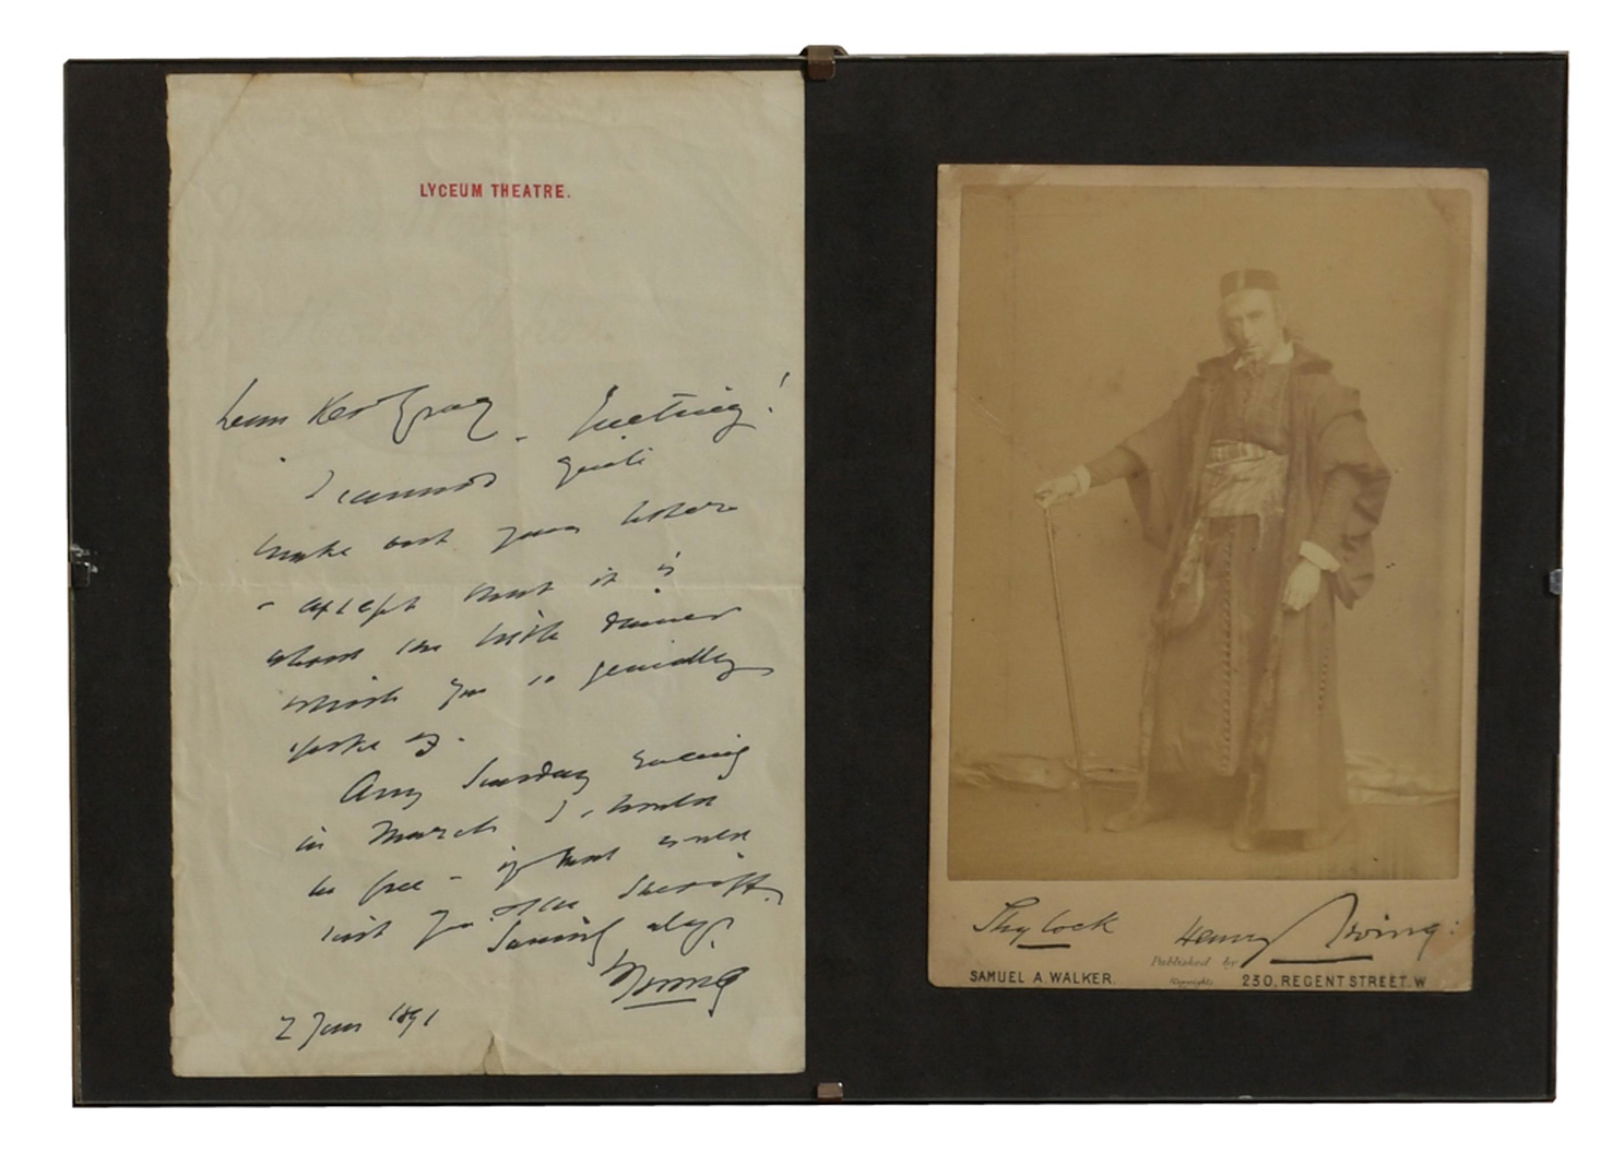 LYCEUM THEATRE.
Dear Ker Gray - Greeting!
I cannot quite
make out your letter
- except that it is
about the little dinner
which you so genially
spoke of.
Any Sunday evening
in March I should
be free - if that would
suit you
always
Irving
2 1891
Shylock Henry Irving:
Published by
SAMUEL A WALKER. Copyright 230, REGENT STREET. W